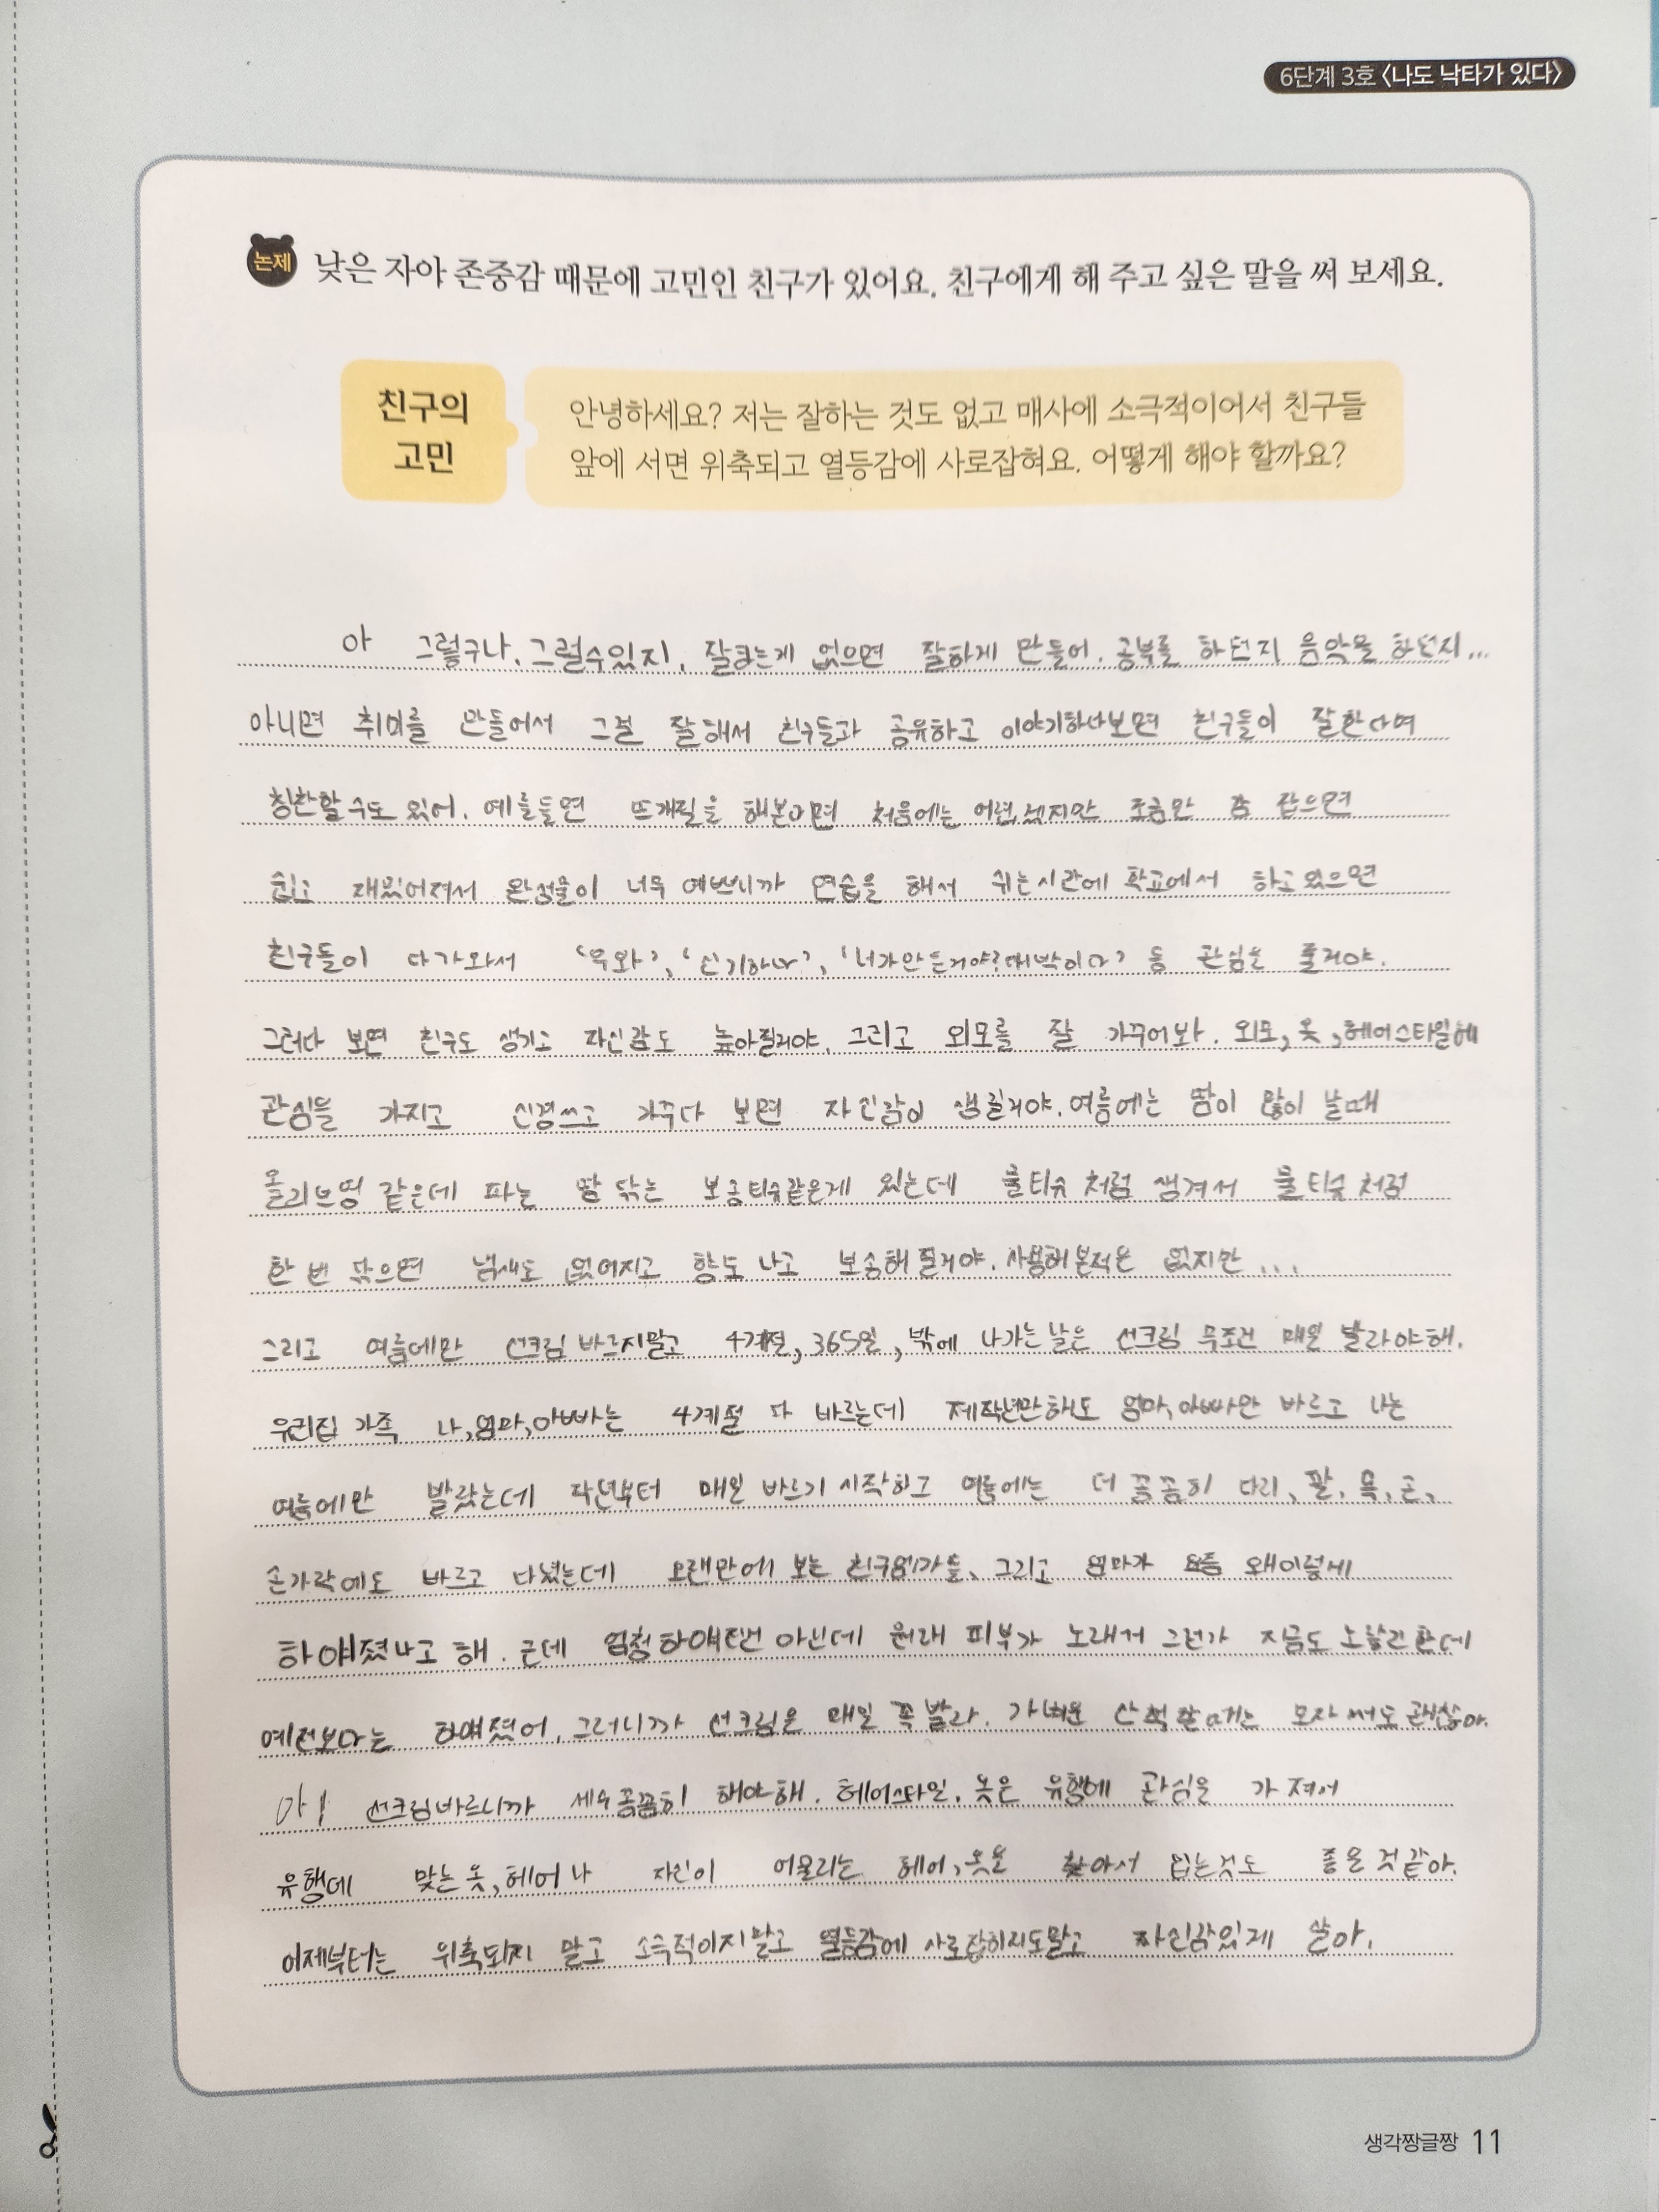 6단계 3호 〈나도 낙타가 있다〉
논제 낮은 자아 존중감 때문에 고민인 친구가 있어요. 친구에게 해 주고 싶은 말을 써 보세요.
친구의
고민
안녕하세요? 저는 잘하는 것도 없고 매사에 소극적이어서 친구들
앞에 서면 위축되고 열등감에 사로잡혀요. 어떻게 해야 할까요?
아 그렇구나. 그럴수있지. 잘하는게 없으면 잘하게 만들어. 공부를 하던지 음악을 하던지...
아니면 취미를 만들어서 그걸 잘해서 친구들과 공유하고 이야기하다보면 친구들이 잘한다며
칭찬할 수도 있어. 예를들면 뜨개질을 해본다면 처음에는 어렵겠지만 조금만 감 잡으면
쉽고 재밌어져서 완성물이 너무 예쁘니까 연습을 해서 쉬는시간에 학교에서 하고있으면
친구들이 다가와서 '우와', '신기하다', '너가만든거야? 대박이다' 등 관심을 줄거야.
그러다 보면 친구도 생기고 자신감도 높아질거야. 그리고 외모를 잘 가꾸어봐. 외모, 옷, 헤어스타일에
관심을 가지고 신경쓰고 가꾸다 보면 자신감이 생길거야. 여름에는 땀이 많이 날때
올리브영 같은데 파는 땀 닦는 보송티슈같은게 있는데 물티슈 처럼 생겨서 물티슈 처럼
한 번 닦으면 냄새도 없어지고 향도 나고 보송해질거야. 사용해본적은 없지만...
그리고 여름에만 선크림 바르지말고 4계절, 365일, 밖에 나가는날은 선크림 무조건 매일 발라야해.
우리집 가족 나, 엄마, 아빠는 4계절 다 바르는데 제작년만해도 엄마, 아빠만 바르고 나는
여름에만 발랐는데 작년부터 매일 바르기 시작하고 여름에는 더 꼼꼼히 다리, 팔, 목, 손,
손가락에도 바르고 다녔는데 오랜만에 보는 친구엄마들, 그리고 엄마가 요즘 왜이렇게
하얘졌냐고 해. 근데 엄청하얘진건 아닌데 원래 피부가 노래서 그런가 지금도 노랗긴한데
예전보다는 하얘졌어. 그러니까 선크림은 매일 꼭 발라. 가벼운 산책할때는 모자써도 괜찮아.
아! 선크림바르니까 세수꼼꼼히 해야해. 헤어스타일, 옷은 유행에 관심을 가져서
유행에 맞는 옷, 헤어나 자신이 어울리는 헤어, 옷을 찾아서 입는것도 좋은것같아.
이제부터는 위축되지 말고 소극적이지말고 열등감에 사로잡히지도말고 자신감있게 살아.
생각짱글짱 11